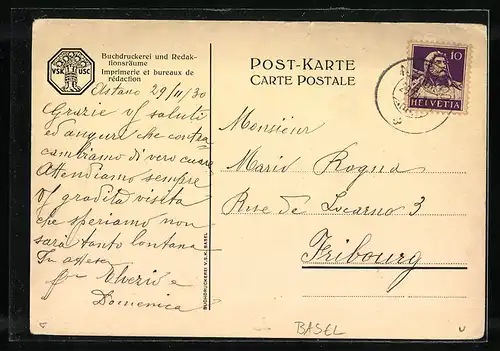 VSK USC
Buchdruckerei und Redak-
tionsräume
Imprimerie et bureaux de
rédaction
POST-KARTE
CARTE POSTALE
10
HELVETIA
29/11/30
Grazie vs/ saluti
ed auguri che contra
cambiamo di vero cuore
Attendiamo sempre
vs/ gradita visita
che speriamo non
sarà tanto lontana
In attesa
Elvezio e
Domenica
Monsieur
Mario Rogna
Rue de Locarno 3
Fribourg
BUCHDRUCKEREI V.S.K. BASEL
BASEL